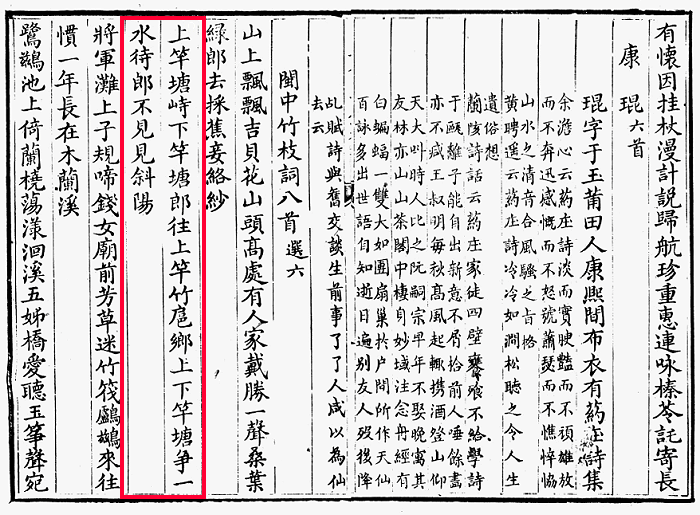 有懷因挂杖漫計說歸航珍重惠連咏榛苓託寄長
康 琨 六首
琨字于玉莆田人康熙間布衣有葯庄詩集
余澹心云葯庄詩淡而實腴豔而不頑雄放
而不奔迅感慨而不怒號蕭瑟而不憔悴恊
山水之清音合風騷之旨格
黄聘遥云葯庄詩冷冷如澗松聴之令人生
遺俗想
蘭陔詩話云葯庄家徒四壁饔飧不給學詩
于離子能自出新意不屑拾前人唾餘畫
亦不减王叔明每秋高風起輒携酒登山仰
天大叫時人比之阮嗣宗早年不娶晚寓其
友林亦山山茶閣中棲身妙域注念丹經有
白蝙蝠一雙大如團扇巢於户間所作天仙
百詠多出世語自知逝日遍别友人殁後降
乩賦詩與舊交談生前事了了人咸以為仙
去云
閩中竹枝詞八首 選六
山上飄飄吉貝花山頭高處有人家戴勝一聲桑葉
緑郎去採蕉妾絡紗
上竿塘峙下竿塘郎往上竿竹扈鄉上下竿塘爭一
水待郎不見見斜陽
將軍灘上子規啼錢女廟前芳草迷竹筏鸕鷀來往
慣一年長在木蘭溪
鷺鷀池上倚蘭橈蕩漾洄溪五姊橋愛聽玉箏聲宛